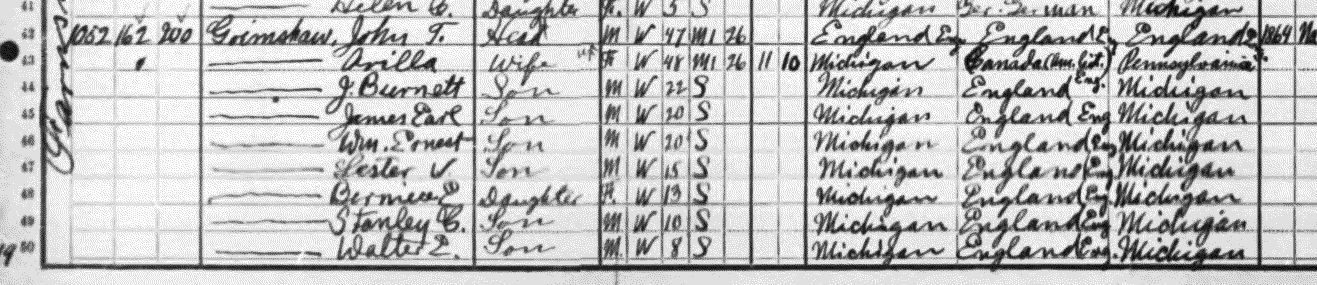 41 Helen C. Daughter F. W 5 S Michigan Ger. German Michigan
42 1052 162 200 Grimshaw, John T. Head M W 47 M1 26 England Eng England Eng England 1864 Na
43 Arilla Wife F W 48 M1 26 11 10 Michigan Canada Pennsylvania
44 J. Burnett Son M W 22 S Michigan England Eng. Michigan
45 James Earl Son M W 20 S Michigan England Eng Michigan
46 Wm. Ernest Son M W 20 S Michigan England Eng Michigan
47 Lester V. Son M W 15 S Michigan England Eng Michigan
48 Bernice E. Daughter F. W 13 S Michigan England Eng Michigan
49 Stanley C. Son M W 10 S Michigan England Eng Michigan
50 Walter E. Son M. W 8 S Michigan England Eng. Michigan